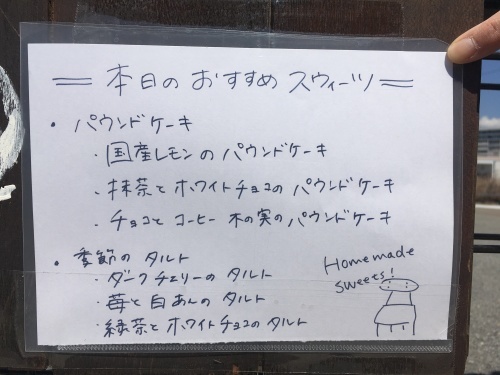 =本日のおすすめスウィーツ=
・パウンドケーキ
・国産レモンのパウンドケーキ
・抹茶とホワイトチョコのパウンドケーキ
・チョコとコーヒー木の実のパウンドケーキ
・季節のタルト
・ダークチェリーのタルト
・苺と白あんのタルト
・緑茶とホワイトチョコのタルト
Homemade
sweets!